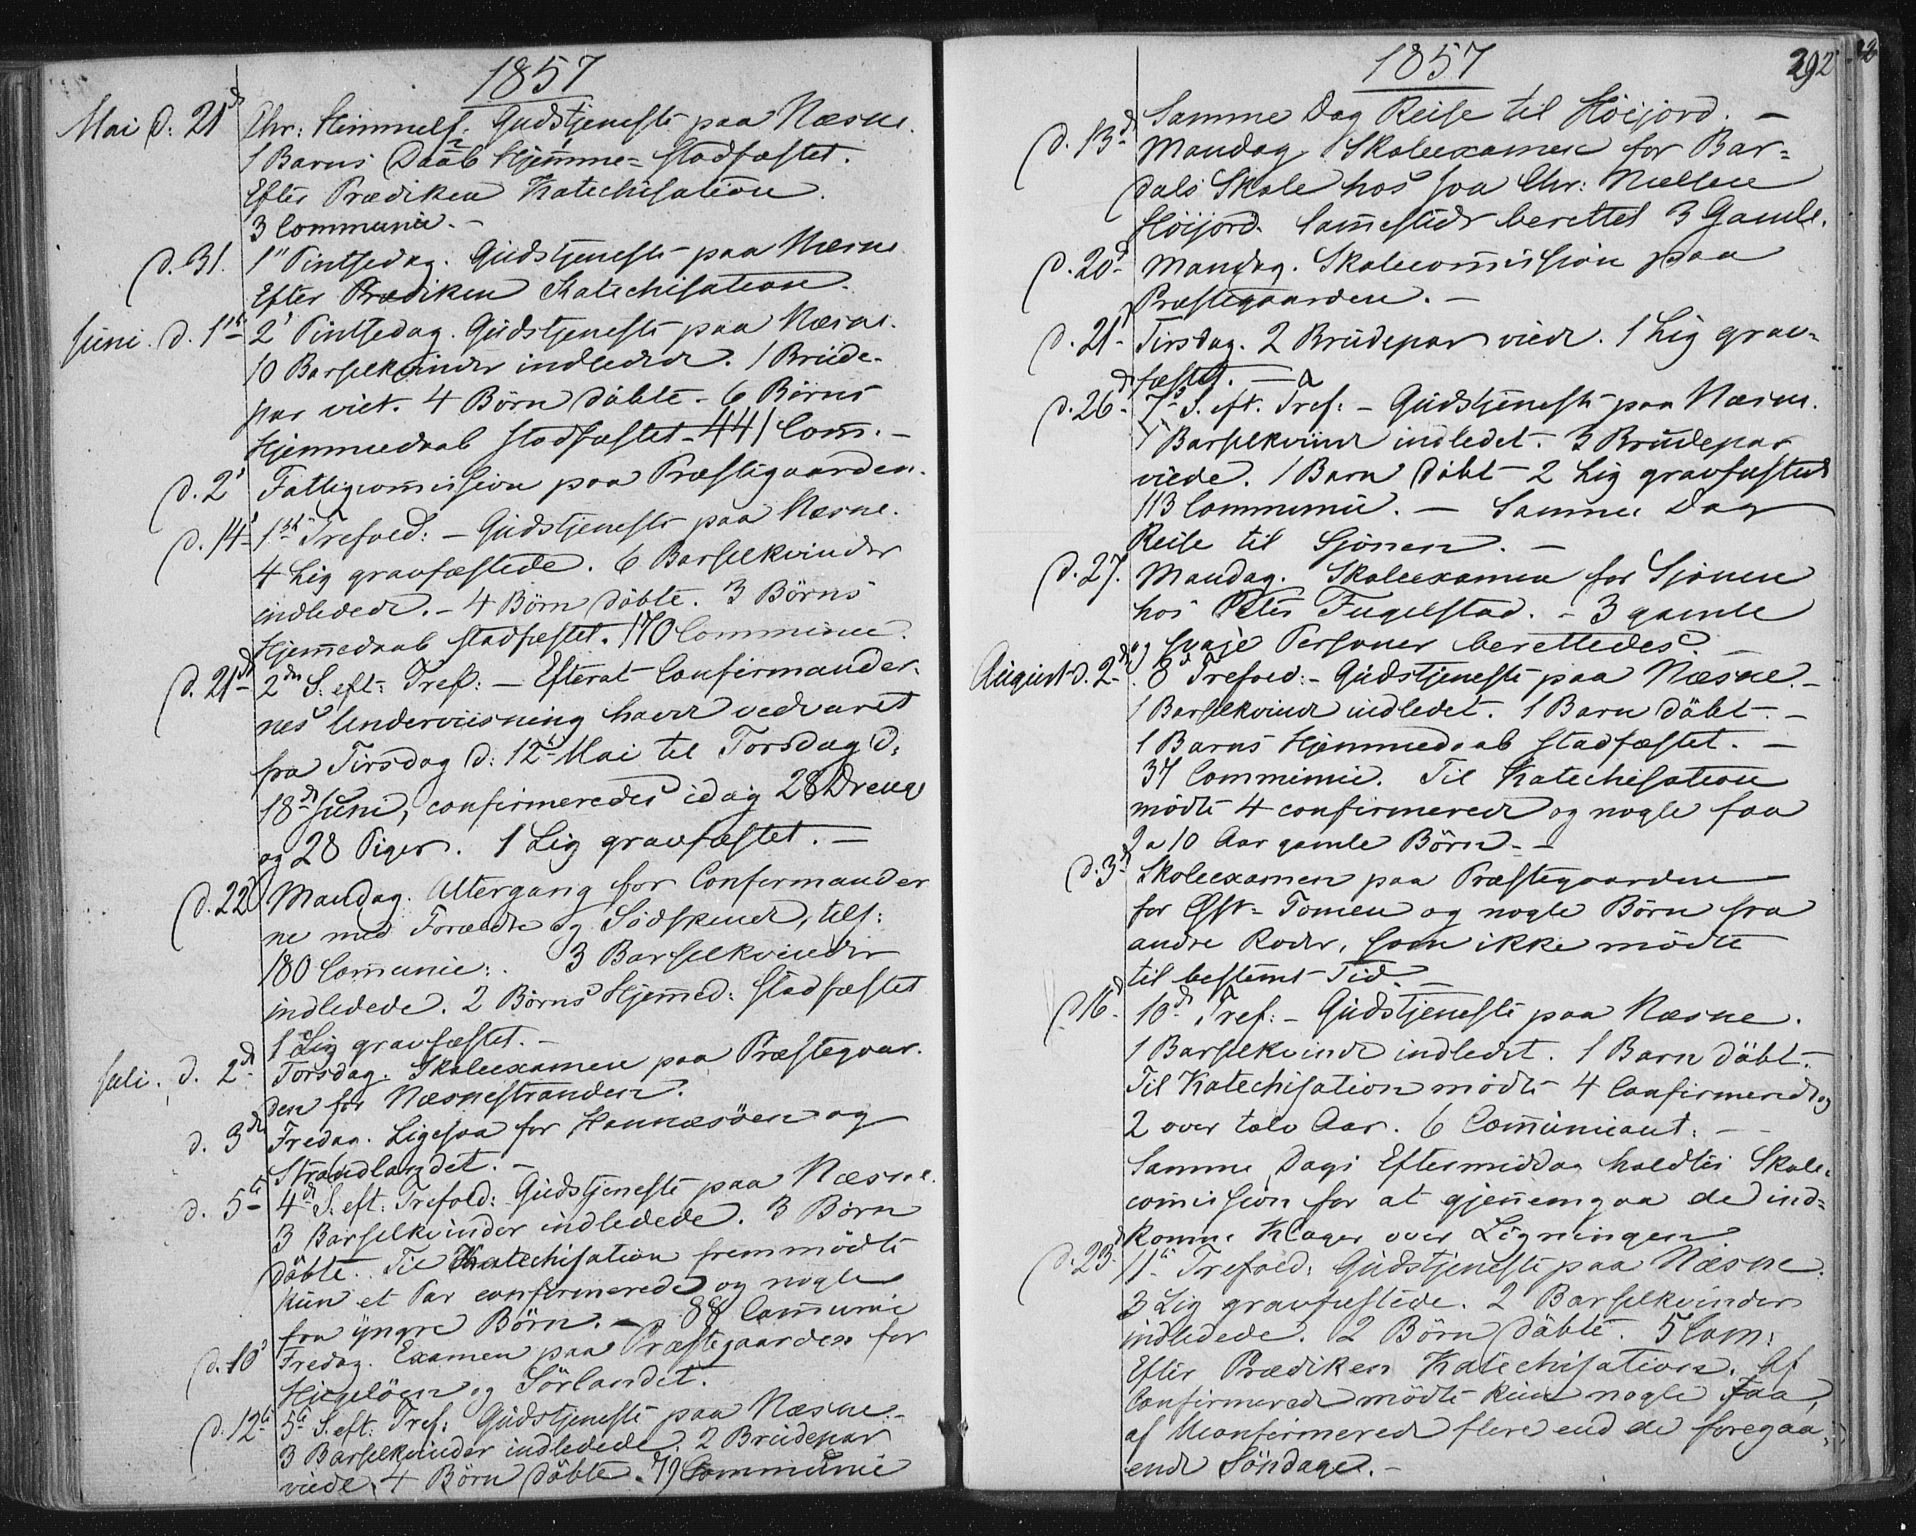 1857
Mai d. 21d Chr: Himmelf. Gudstjeneste paa Næsne.
1 Barns Daab Hjemme- stadfæstet.
Efter Prædiken Katechisation.
3 Communic. -
d. 31. 1" Pintsedag. Gudstjeneste paa Næsne
Efter Prædiken Katechisation.
Juni. d. 1ste 2' Pintsedag. Gudstjeneste paa Næsne.
10 Barselkvinder indledede. 1 Brude-
par viet. 4 Börn döbte - 6 Börns
Hjemmedaab stadfæstet - 441 Com. -
d. 2' Fattigcommission paa Præstegaarden.
d. 14' 1ste Trefold: - Gudstjeneste paa Næsne.
4 Lig gravfæstede. 6 Barselkvinder
indledede. - 4 Börn döbte. 3 Börns
Hjemmedaab stadfæstet. 170 Communic.
d. 21d 2den S: eft: Tref: - Efterat Confirmander-
nes Underviisning havde vedvaret
fra Tirsdag d: 12te Mai til Torsdag d:
18de Juni, confirmeredes idag 28 Drenge
og 28 Piger. 1 Lig gravfæstet. -
d. 22d Mandag. Altergang for Confirmander
ne med Forældre og Södskende, tils:
180 Communic: . 3 Barselkvinder
indledede. 2 Börns Hjemmed: stadfæstet
1 Lig gravfæstet. -
Juli. d. 2d Torsdag. Skoleexamen paa Præstegaar-
den for Næsnestranden.
d. 3de Fredag. Ligesaa for Hannæsöen og
Strandlandet. -
d. 5te 4d S: eft: Trefold: Gudstjeneste paa Næsne.
3 Barselkvinder indledede. 3 Börn
döbte. Til Katechisation fremmödte
kun et Par confirmerede og nogle
faa yngre Börn. - 88 Communic
d. 10' Fredag. Examen paa Præstegaarden for
Hugelöen og Sörlandet.
d. 12te 5te S. eft: Tref: Gudstjeneste paa Næsne. -
3 Barselkvinder indledede. 2 Brudepar
viede. 4 Börn döbte. 79 Communic
1857
292
Samme Dag Reise til Höijord. -
d. 13d Mandag Skoleexamen for Bar-
dals Skole hos Chr: Nielsen
Höijord. Sammesteds berettet 3 Gamle.
d. 20d Mandag. Skolecommission paa
Præstegaarden. -
d. 21d Tirsdag. 2 Brudepar viede. 1 Lig grav-
fæstet. -
d. 26d 7d S. eft. Tref: - Gudstjeneste paa Næsne.
1 Barselkvinde indledet - 3 Brudepar
viede. 1 Barn döbt - 2 Lig gravfæstede
113 Communic. - Samme Dag
Reise til Sjönen. -
d. 27. Mandag. Skoleexamen for Sjönen
hos Peter Fugelstad. - 3 gamle
og svage Personer berettedes. -
August d. 2d 8d Trefold: - Gudstjeneste paa Næsne. -
1 Barselkvinde indledet. 1 Barn döbt. -
1 Barns Hjemmedaab stadfæstet. -
37 Communic. Til Katechisation
mödte 4 confirmerede og nogle faa
9 a 10 Aar gamle Börn. -
d. 3d Skoleexamen paa Præstegaarden
for Øst-Tomen og nogle Börn fra
andre Roder, som ikke mödte
til bestemt Tid. -
d 16d 10d Tref: - Gudstjeneste paa Næsne.
1 Barselkvinde indledet. 1 Barn döbt -
Til Katechisation mödte 4 Confirmerede og
2 over tolv Aar. 6 Communicant: -
Samme Dags Eftermiddag holdtes Skole-
comission for at gjennemgaa de ind-
komne Klager over Ligningen
d. 23d 11te Trefold: Gudstjeneste paa Næsne.
3 Lig gravfæstede. 2 Barselkvinder
indledede. 2 Börn döbte. 5 Com:
Efter Prædiken Katechisation. Af
Confirmerede mödte kun nogle Faa,
af Uconfirmerede flere end de foregaa-
ende Söndage. -